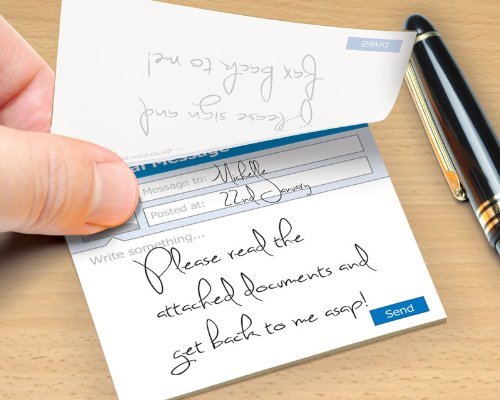 Send
fax back to me!
Please sign and
al Message
Message to: Michelle
Posted at: 22nd January
Write something...
Please read the
attached documents and
get back to me asap!
Send